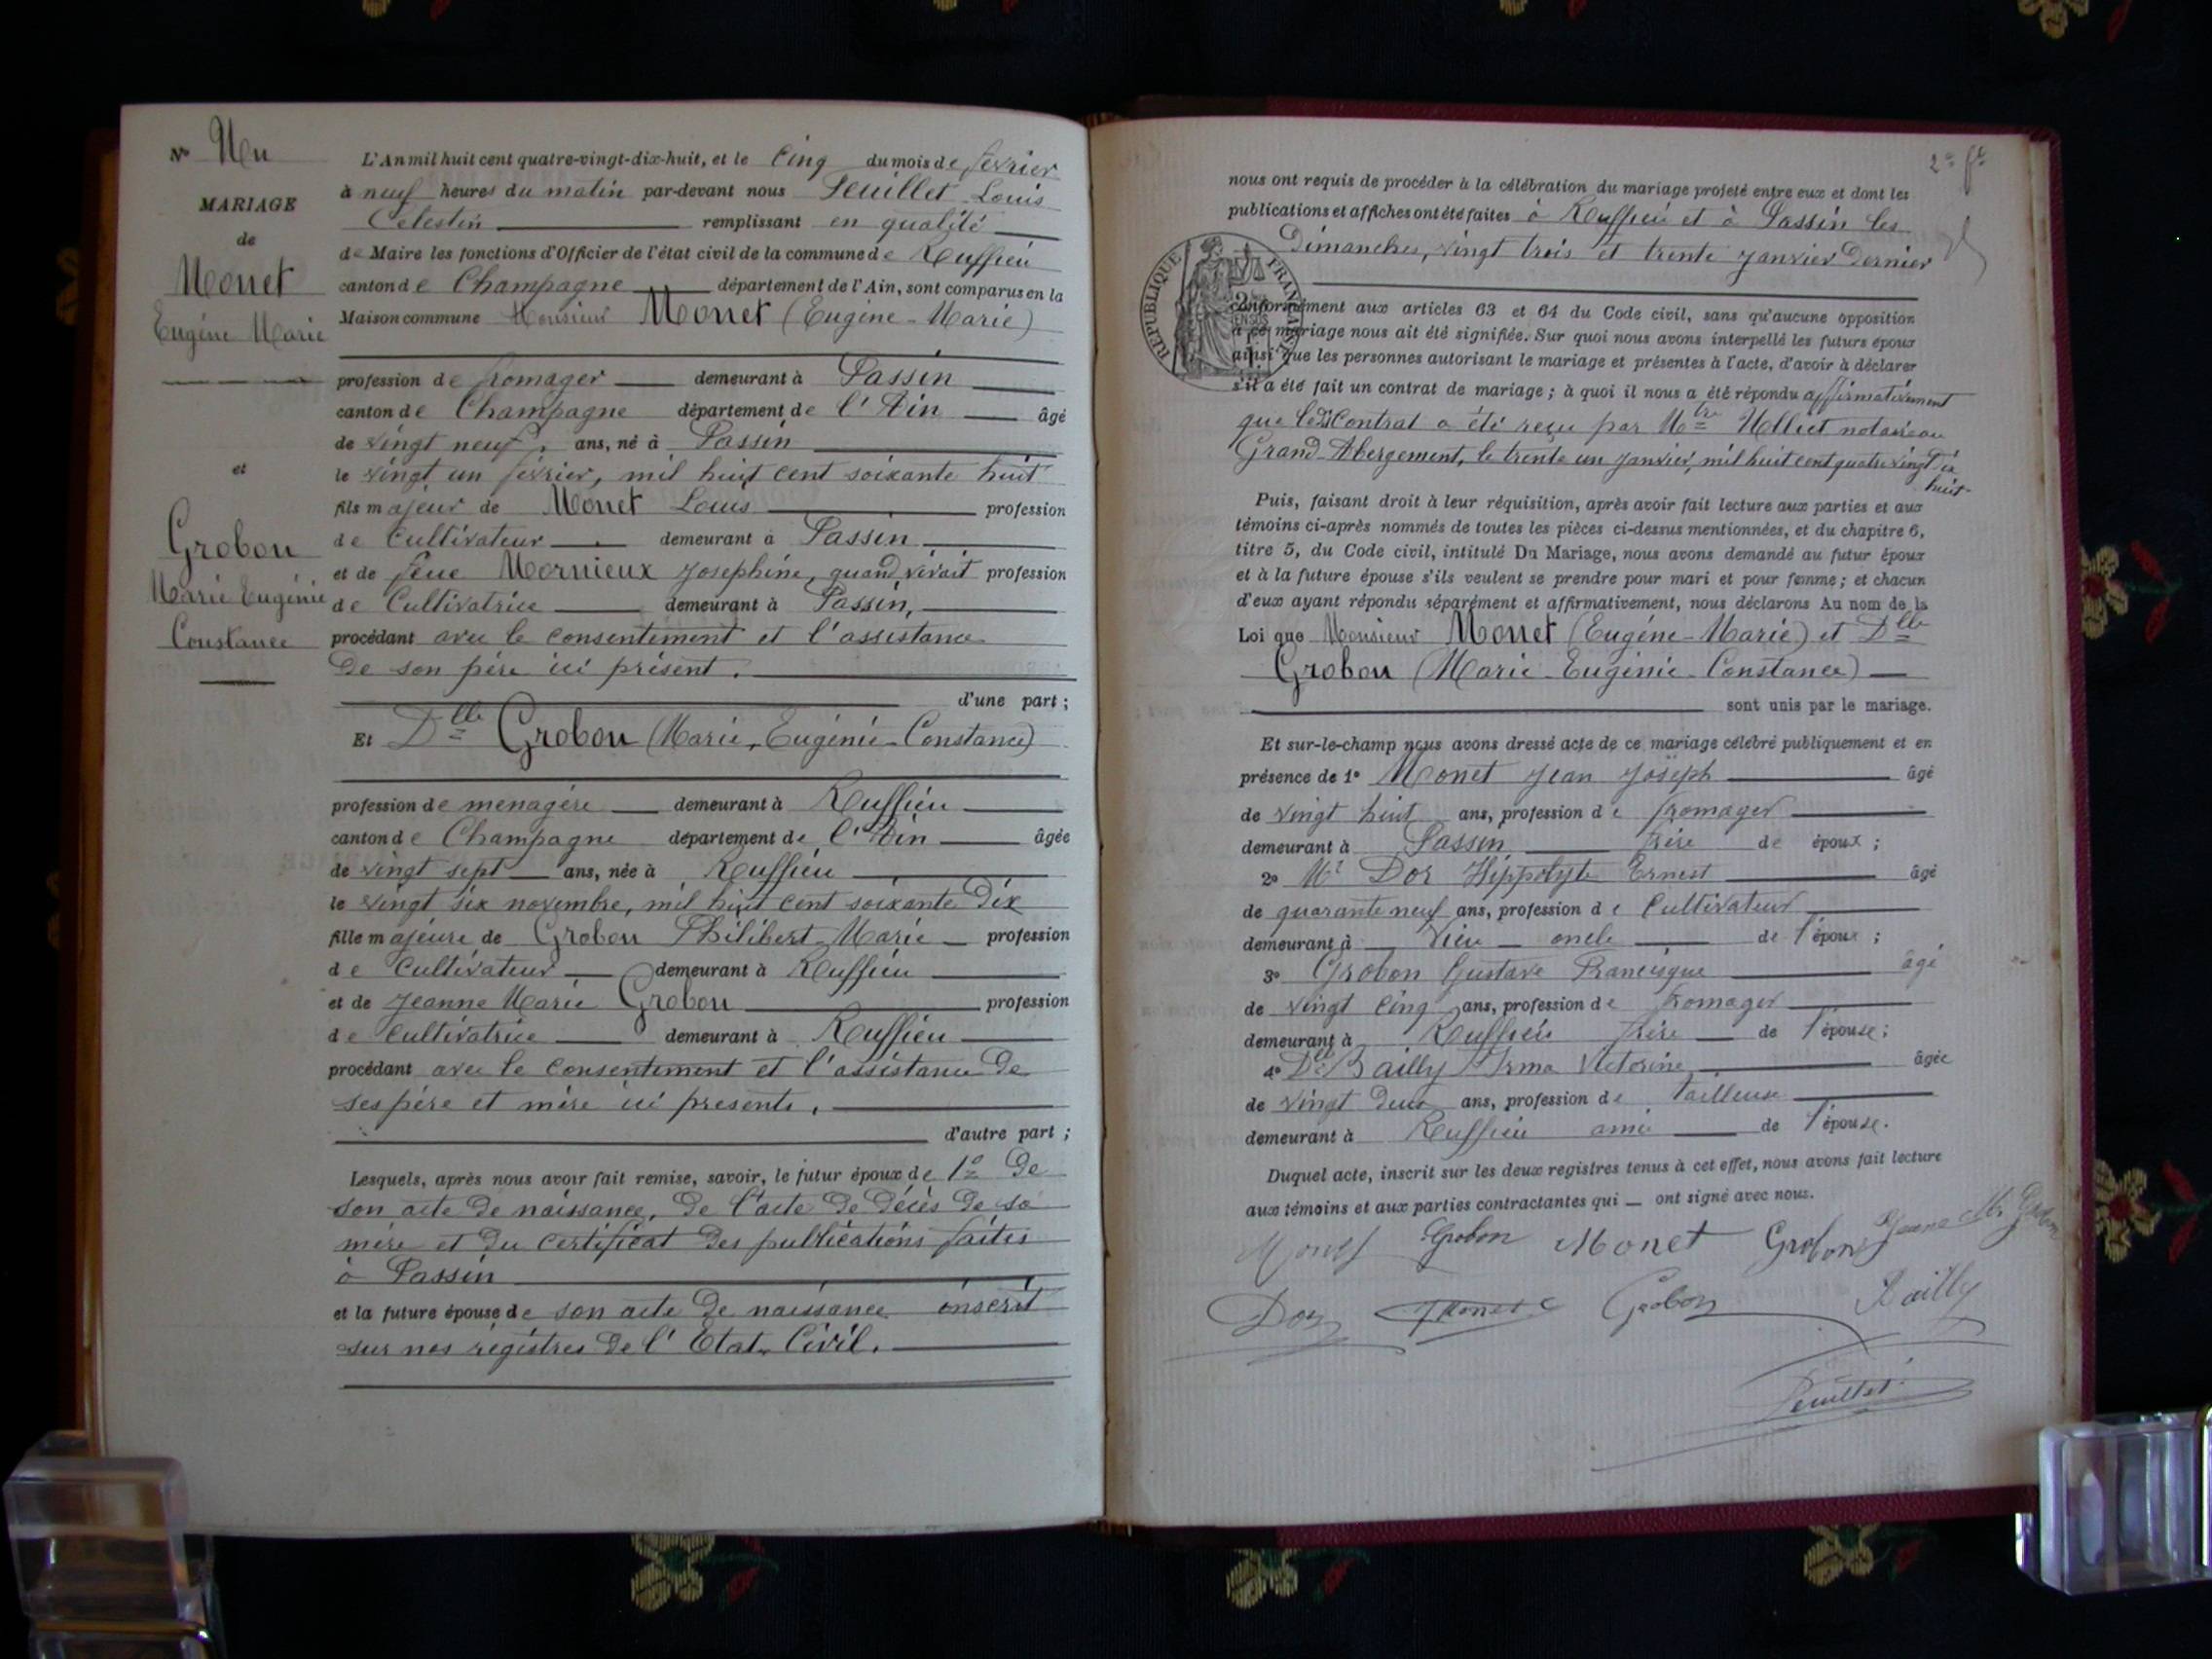 N° Un
MARIAGE
de
Monet
Eugène Marie
et
Grobon
Marie Eugénie
Constance
L'An mil huit cent quatre-vingt-dix-huit, et le cinq du mois de février
à neuf heures du matin par-devant nous Feuillet Louis
Célestin remplissant en qualité
de Maire les fonctions d'Officier de l'état civil de la commune de Ruffieu
canton de Champagne département de l'Ain, sont comparus en la
Maison commune Monsieur Monet (Eugène-Marie)
profession de fromager demeurant à Passin
canton de Champagne département de l'Ain âgé
de vingt neuf ans, né à Passin
le vingt un février, mil huit cent soixante huit
fils majeur de Monet Louis profession
de Cultivateur demeurant à Passin
et de feue Mornieux Joséphine, quand vivait profession
de Cultivatrice demeurant à Passin,
procédant avec le consentement et l'assistance
de son père ici présent.
d'une part ;
Et Dlle Grobon (Marie-Eugénie-Constance)
profession de menagère demeurant à Ruffieu
canton de Champagne département de l'Ain âgée
de vingt sept ans, née à Ruffieu
le vingt six novembre, mil huit cent soixante dix
fille majeure de Grobon Philibert-Marie profession
de Cultivateur demeurant à Ruffieu
et de Jeanne Marie Grobon profession
de cultivatrice demeurant à Ruffieu
procédant avec le consentement et l'assistance de
ses père et mère ici presents.
d'autre part ;
Lesquels, après nous avoir fait remise, savoir, le futur époux de 1° de
son acte de naissance, de l'acte de décès de sa
mère et du certificat des publications faites
à Passin
et la future épouse de son acte de naissance inscrit
sur nos régistres de l'Etat-Civil.
2e ft
nous ont requis de procéder à la célébration du mariage projeté entre eux et dont les
publications et affiches ont été faites à Ruffieu et à Passin les
Dimanches, vingt trois et trente janvier dernier
RÉPUBLIQUE FRANÇAISE
conformément aux articles 63 et 64 du Code civil, sans qu'aucune opposition
à ce mariage nous ait été signifiée. Sur quoi nous avons interpellé les futurs époux
ainsi que les personnes autorisant le mariage et présentes à l'acte, d'avoir à déclarer
s'il a été fait un contrat de mariage ; à quoi il nous a été répondu affirmativement
que ledit Contrat a été reçu par Mtre Ulliet notaire au
Grand-Abergement, le trente un janvier, mil huit cent quatre vingt dix
huit
Puis, faisant droit à leur réquisition, après avoir fait lecture aux parties et aux
témoins ci-après nommés de toutes les pièces ci-dessus mentionnées, et du chapitre 6,
titre 5, du Code civil, intitulé Du Mariage, nous avons demandé au futur époux
et à la future épouse s'ils veulent se prendre pour mari et pour femme ; et chacun
d'eux ayant répondu séparément et affirmativement, nous déclarons Au nom de la
Loi que Monsieur Monet (Eugène-Marie) et Dlle
Grobon (Marie-Eugénie-Constance)
sont unis par le mariage.
Et sur-le-champ nous avons dressé acte de ce mariage célébré publiquement et en
présence de 1° Monet Jean Joseph âgé
de vingt huit ans, profession de fromager
demeurant à Passin frère de époux ;
2° Mr Dor Hippolyte Ernest âgé
de quarante neuf ans, profession de Cultivateur
demeurant à Vieu oncle de l'époux ;
3° Grobon Gustave Francisque âgé
de vingt cinq ans, profession de fromager
demeurant à Ruffieu frère de l'épouse ;
4° Dlle Bailly Irma Victorine âgée
de vingt deux ans, profession de tailleuse
demeurant à Ruffieu amie de l'épouse.
Duquel acte, inscrit sur les deux registres tenus à cet effet, nous avons fait lecture
aux témoins et aux parties contractantes qui ont signé avec nous.
Monet Grobon Monet Grobon Jeanne M. Grobon
Dor Monet Grobon Bailly
Feuillet